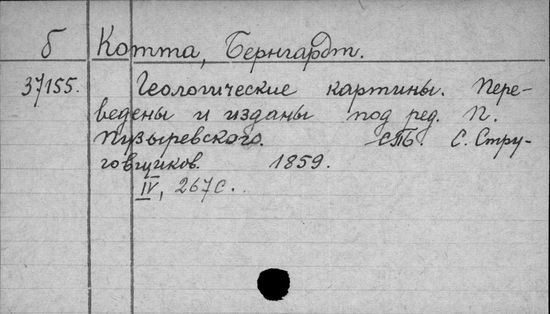 б Котта, Бернгардт.
37155. Геологические картины. Пере-
ведены и изданы под ред. П.
Пузыревского. спб. С. Стру-
говщиков. 1859.
IV, 267 с.